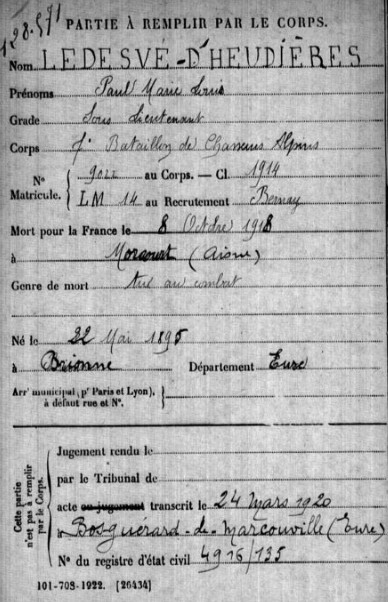 128.571
PARTIE À REMPLIR PAR LE CORPS.
Nom LEDESVÉ-D'HEUDIÈRES
Prénoms Paul Marie Louis
Grade Sous Lieutenant
Corps 7e Bataillon de Chasseurs Alpins
Nº Matricule. { 9022 au Corps. — Cl. 1914
LM 14 au Recrutement Bernay
Mort pour la France le 8 Octbre 1918
à Morcourt (Aisne)
Genre de mort tué au combat
Né le 22 Mai 1895
à Brionne Département Eure
Arrt municipal (pr Paris et Lyon), à défaut rue et Nº. }
Cette partie n'est pas à remplir par le Corps.
Jugement rendu le
par le Tribunal de
acte ou jugement transcrit le 24 Mars 1920
à Bosguérard-de-Marcouville (Eure)
Nº du registre d'état civil 4916/135
101-708-1922. [26434]